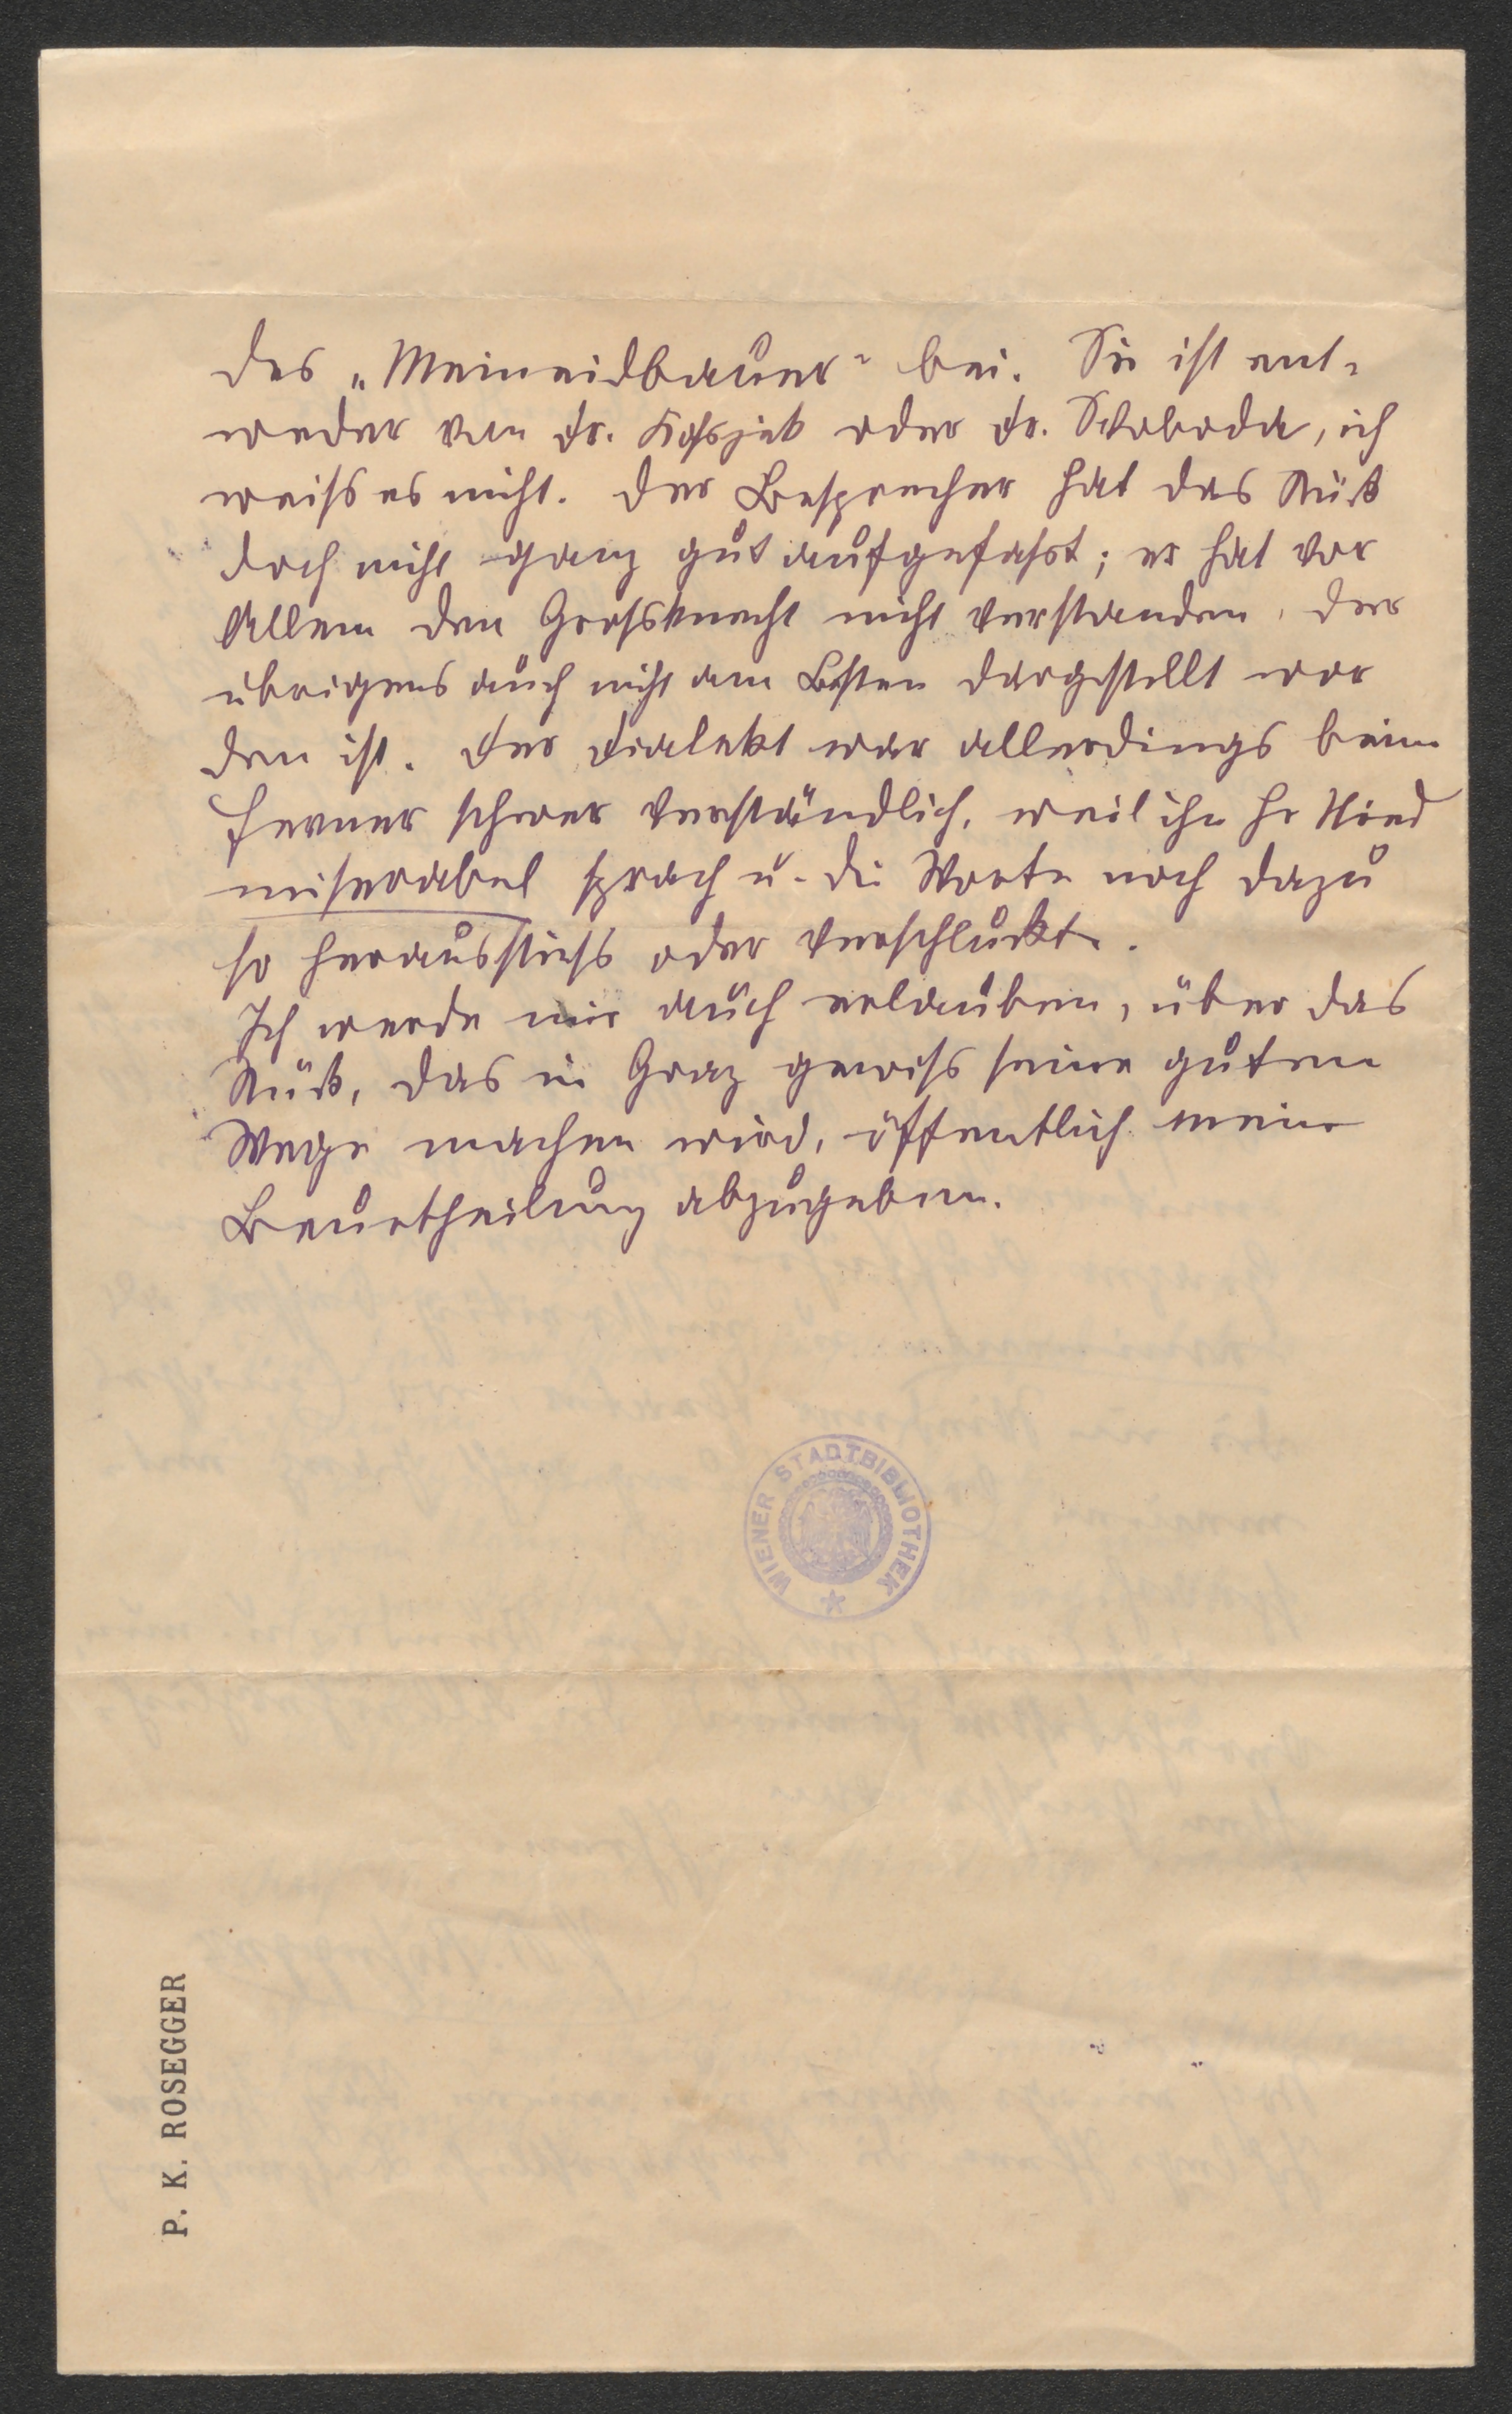 des „Meineidbauer" bei. Sie ist ent-
weder von Dr. oder Dr. Svoboda, ich
weiss es nicht. Der Besprecher hat das Stück
doch nicht ganz gut aufgefasst; er hat vor
Allem den Grossknecht nicht verstanden, der
übrigens auch nicht am Besten dargestellt wor
den ist. Der Dialekt war allerdings beim
Ferner schwer verständlich, weil ihn Hr
miserabel sprach u. die Worte noch dazu
so herausstiess oder verschluckte.
Ich werde mir auch erlauben, über das
Stück, das in Graz gewiss seine guten
Wege machen wird, öffentlich meine
Beurtheilung abzugeben.
WIENER STADTBIBLIOTHEK
P. K. ROSEGGER